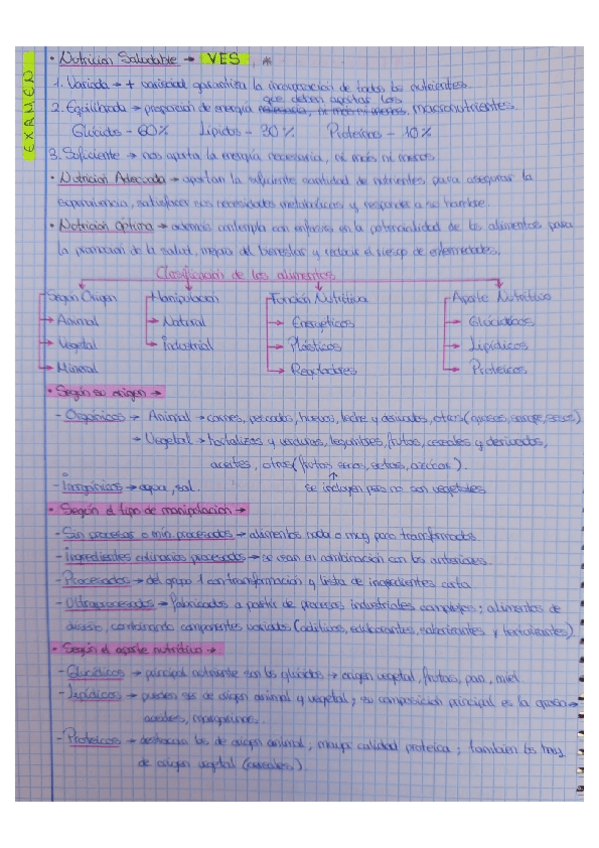 EXAMEN
• Nutrición Saludable → VES, *
1. Variada → + variedad garantiza la incorporación de todos los nutrientes.
que deben aportar los
2. Equilibrada → proporción de energía necesaria, ni más ni menos, macronutrientes.
Glúcidos - 60% Lípidos - 30% Proteínas - 10%
3. Suficiente → nos aporta la energía necesaria, ni más ni menos.
• Nutrición Adecuada → aportan la suficiente cantidad de nutrientes para asegurar la
supervivencia, satisfacer sus necesidades metabólicas y responder a su hambre.
• Nutrición óptima → además contempla con énfasis en la potencialidad de los alimentos para
la promoción de la salud, mejora del bienestar y reducir el riesgo de enfermedades.
Clasificación de los alimentos
Según Origen Manipulación Función Nutritiva Aporte Nutritivo
→ Animal → Natural → Energéticos → Glucídicos
→ Vegetal → Industrial → Plásticos → Lipídicos
→ Mineral → Reguladores → Proteicos
• Según su origen →
- Orgánicos → Animal → carnes, pescados, huevos, leche y derivados, otros (grasas, sangre, sesos)
→ Vegetal → hortalizas y verduras, legumbres, frutas, cereales y derivados,
aceites, otras (frutos secos, setas, azúcar).
- Inorgánicos → agua, sal. se incluyen pero no son vegetales
• Según el tipo de manipulación →
- Sin procesar o mín. procesados → alimentos nada o muy poco transformados.
- Ingredientes culinarios procesados → se usan en combinación con los anteriores.
- Procesados → del grupo 1 con transformación y lista de ingredientes corta.
- Ultraprocesados → fabricados a partir de procesos industriales complejos; alimentos de
diseño, conteniendo componentes variados (aditivos, edulcorantes, saborizantes y texturizantes)
• Según el aporte nutritivo →
- Glucídicos → principal nutriente son los glúcidos → origen vegetal, frutas, pan, miel.
- Lipídicos → pueden ser de origen animal y vegetal; su composición principal es la grasa →
aceites, margarinas.
- Proteicos → destacan los de origen animal, mayor calidad proteica; también los hay
de origen vegetal (cereales..)